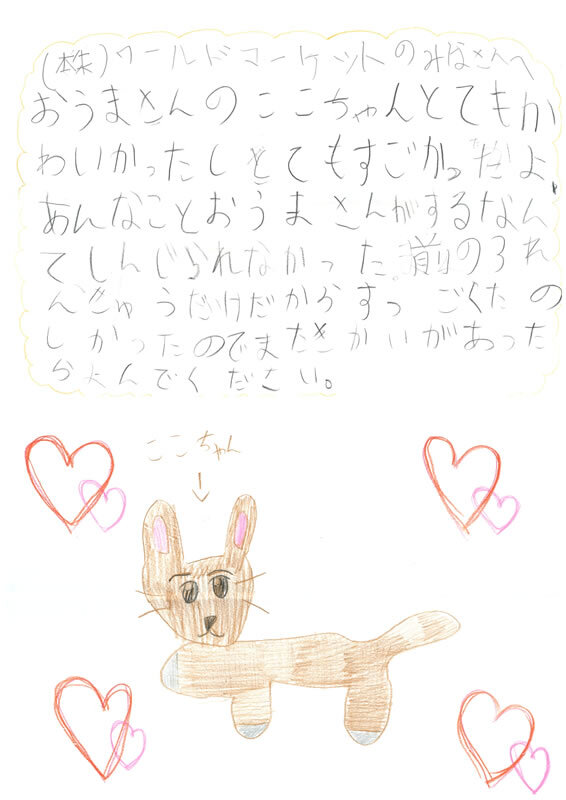 (株)ワールドマーケットのみなさんへ
おうまさんのここちゃんとてもか
わいかったしとてもすごかっだよ、
あんなことおうまさんがするなん
てしんじられなかった。前の3れ
んきゅうだけだからすっごくたの
しかったのでまたきかいがあった
らよんでください。
ここちゃん